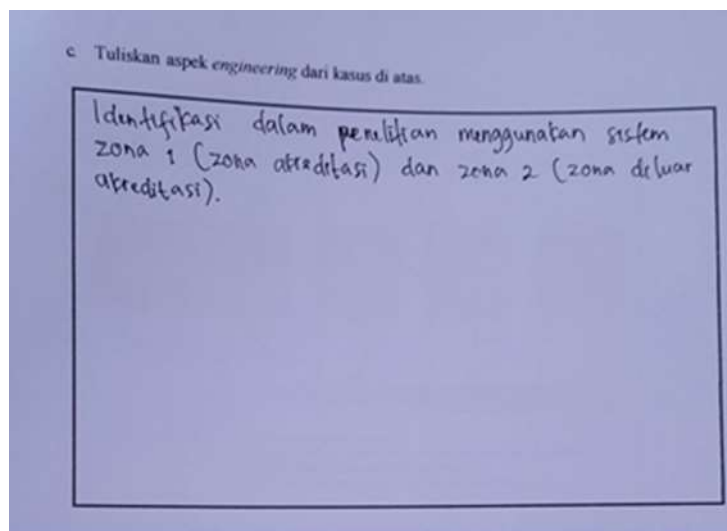 c. Tuliskan aspek engineering dari kasus di atas.
Identifikasi dalam penelitian menggunakan sistem
zona 1 (zona akreditasi) dan zona 2 (zona diluar
akreditasi).